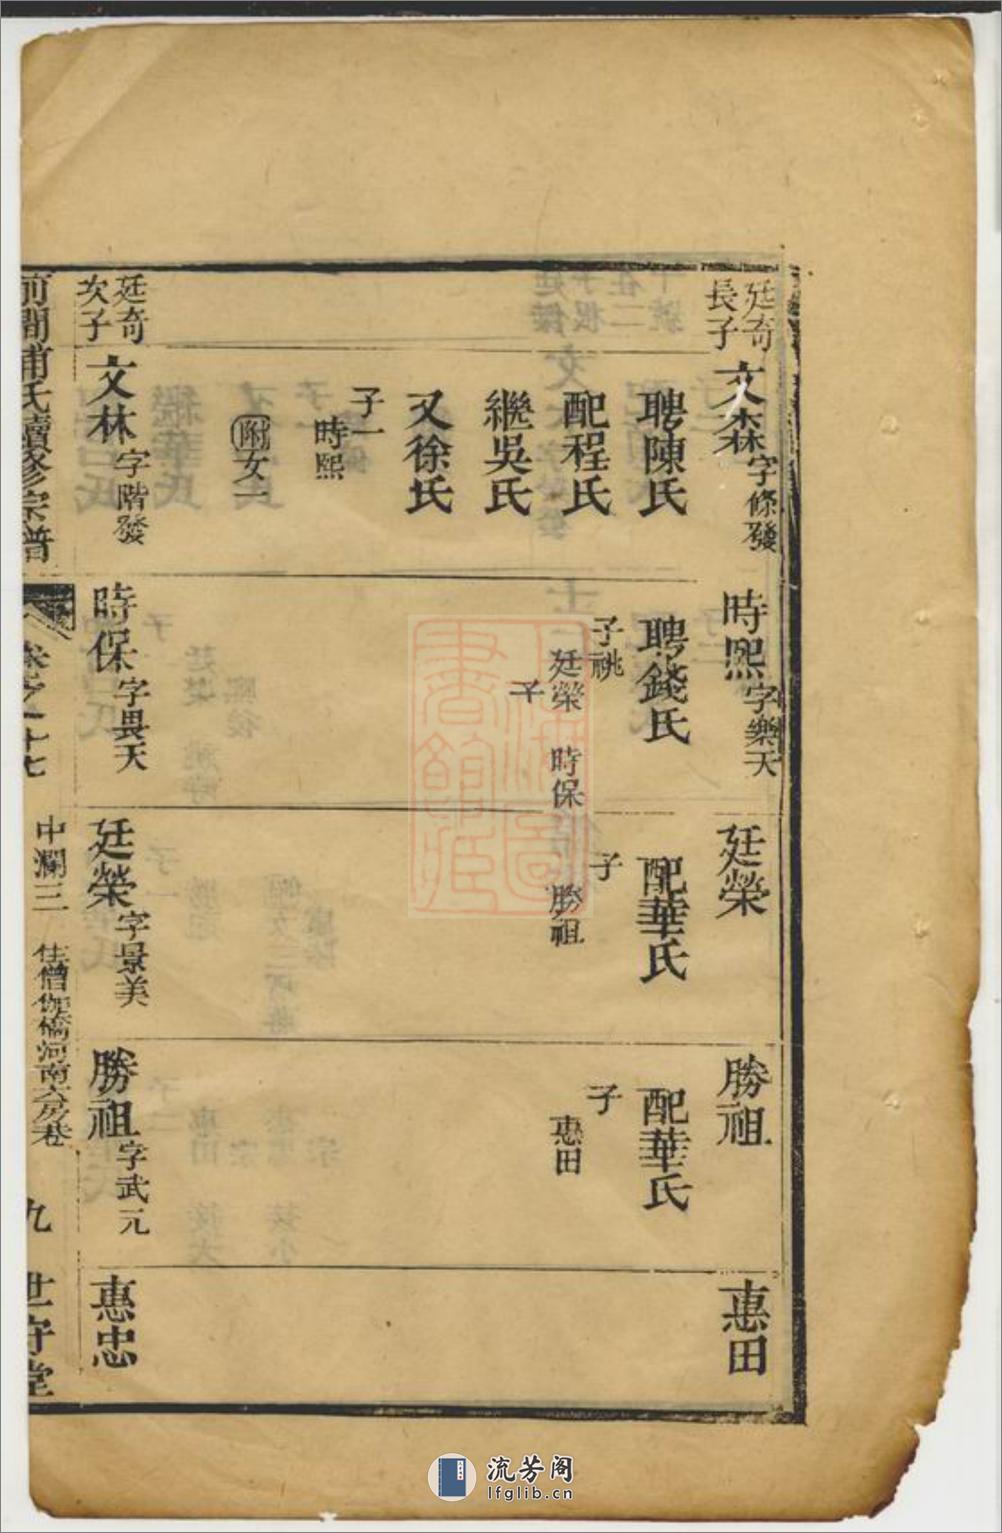 廷奇
長子
文森
字條發
聘陳氏
配程氏
繼吳氏
又徐氏
子一
時熙
附女一
時熙
字樂天
聘錢氏
子祧
廷榮 時保
子
廷榮
配華氏
子
勝祖
勝祖
配華氏
子
惠田
惠田
廷奇
次子
文林
字階發
時保
字畏天
廷榮
字景美
勝祖
字武元
惠忠
前澗浦氏續修宗譜
卷之十七
中瀾三
住僧伽橋河南六房巷
九
世守堂
上海圖書館藏
流芳阁
lfglib.cn